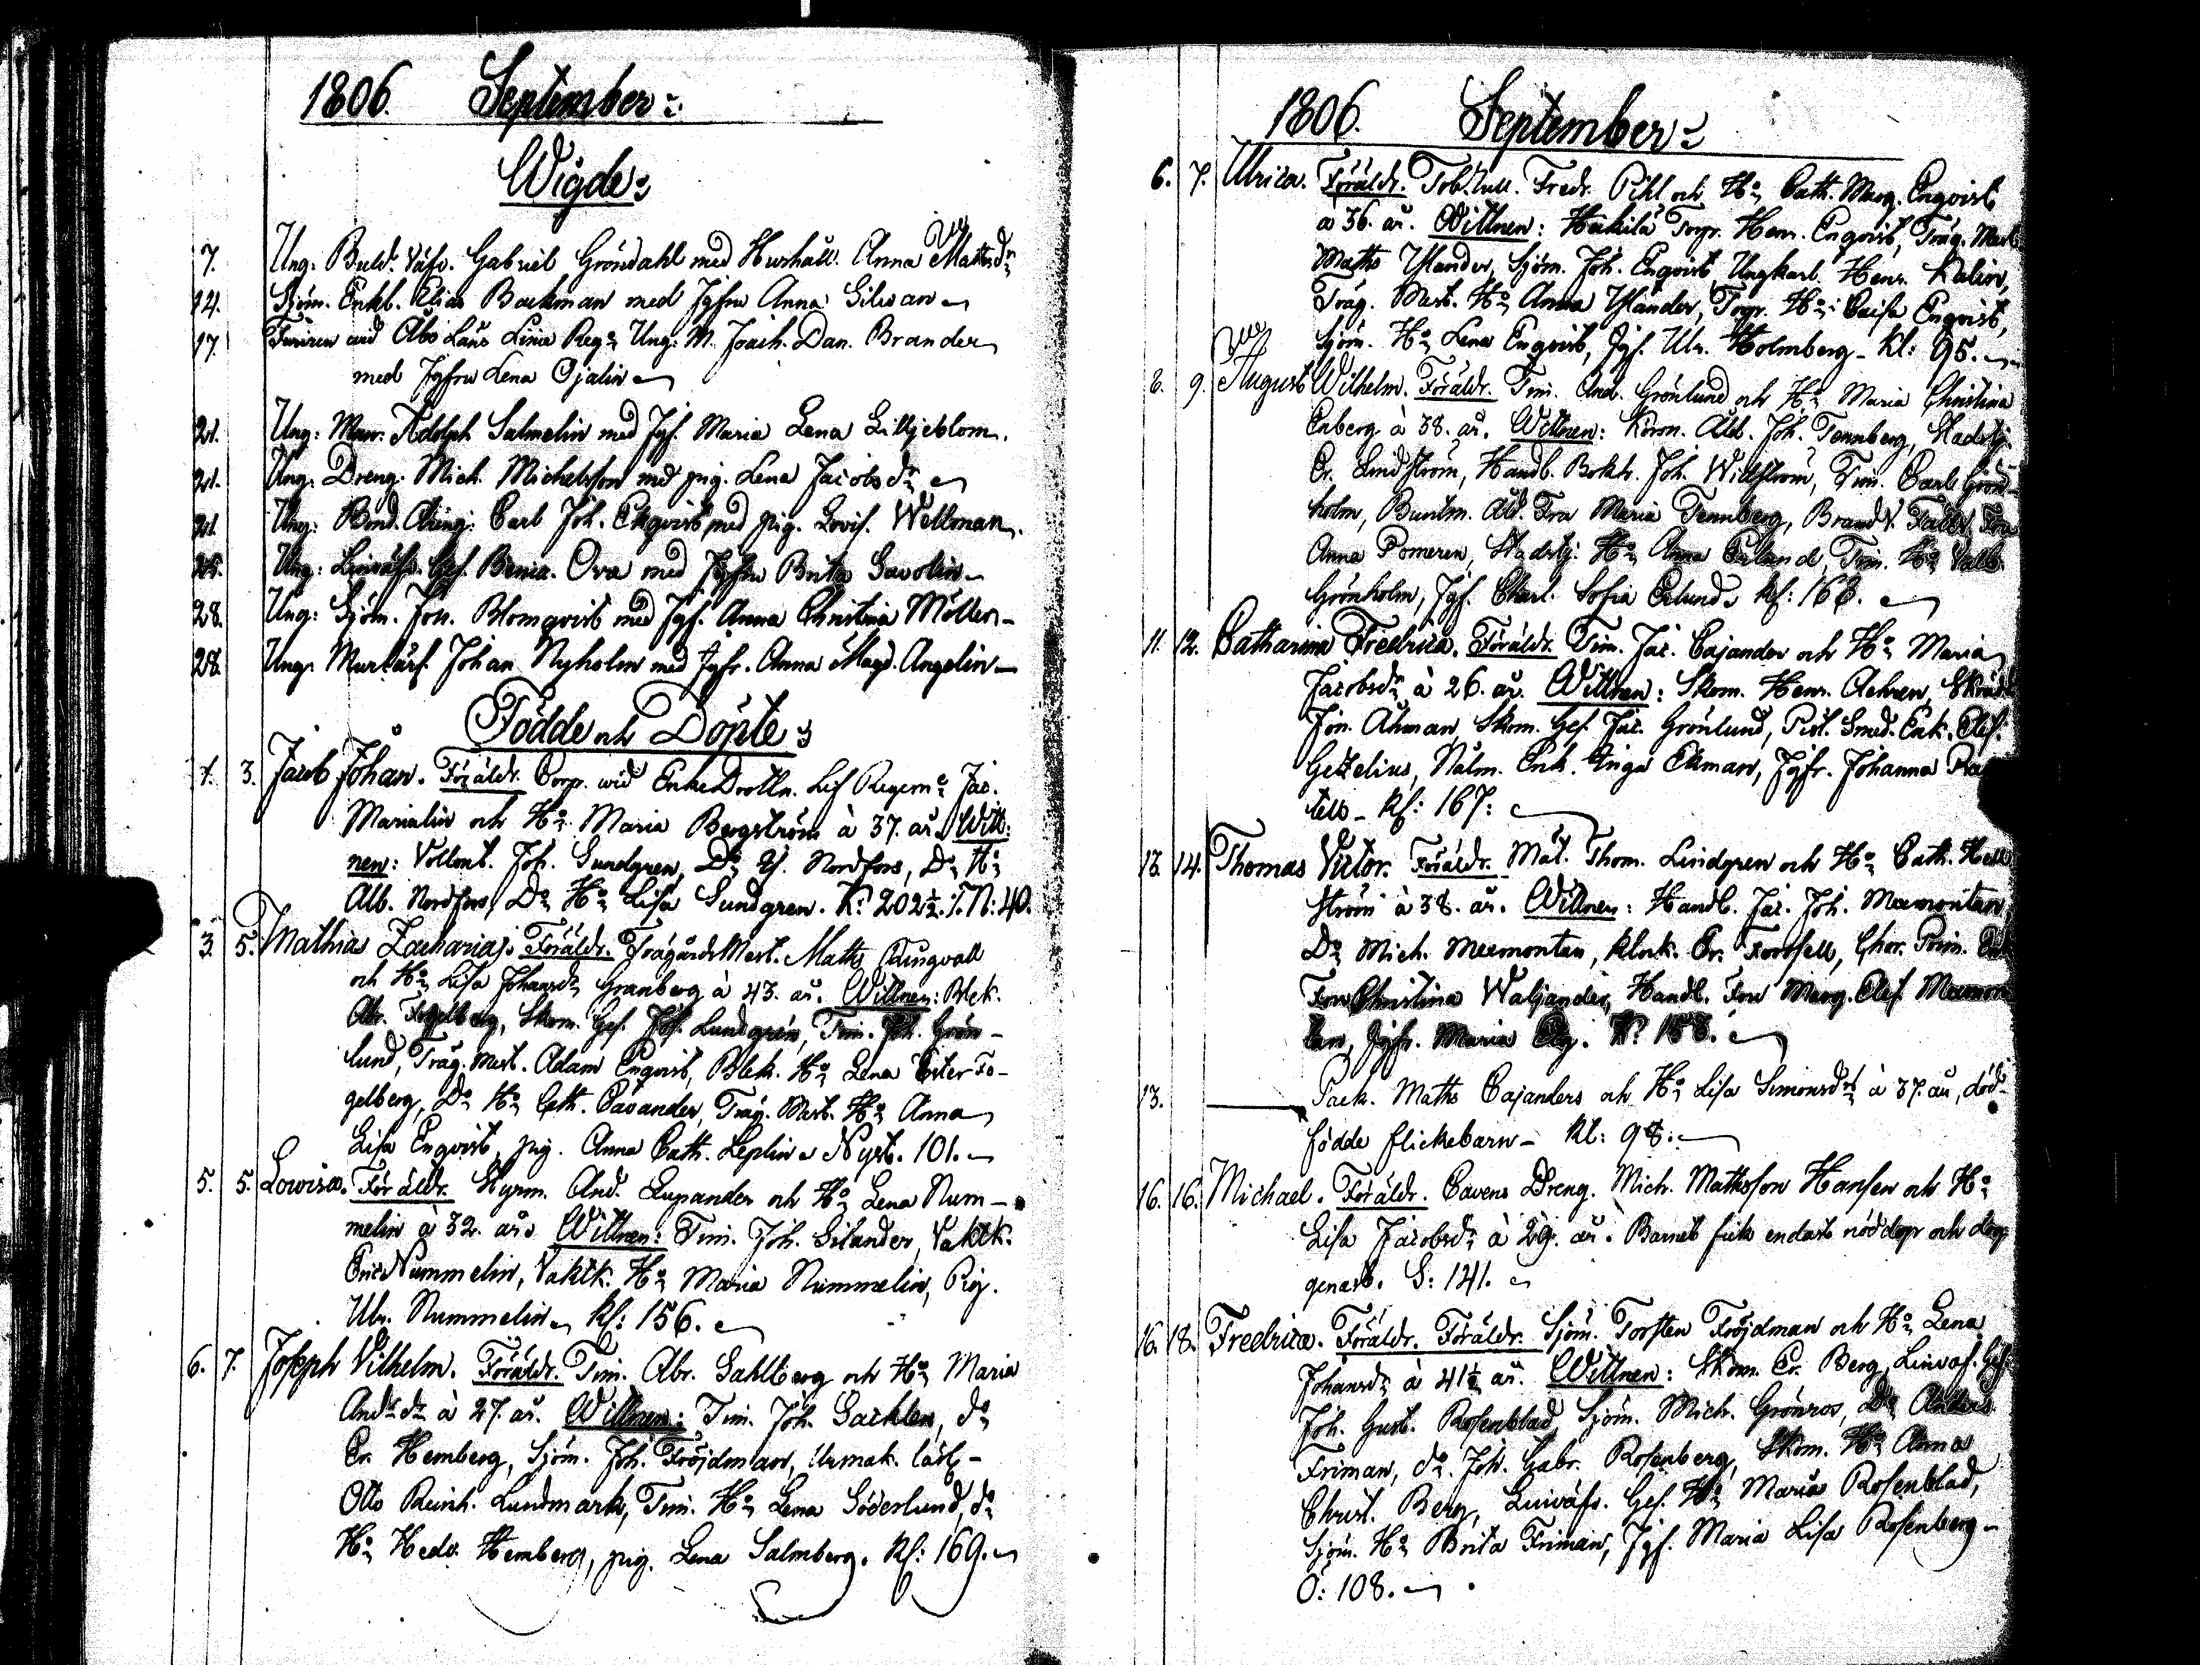 1806. September:
Wigde:
7. Ung. Buld. Väfv. Gabriel Gröndahl med Hushåll. Anna Mattsdr
14. Sjöm. Enkl. Elias Backman med Jgfru Anna Silvan
17. Furiren vid Åbo Läns Linie Reg: Ung: M. Joach. Dan. Brander
med Jgfru Lena Ojalin
21. Ung: Mur. Adolph Salmelin med Jgf. Maria Lena Lilljeblom.
21. Ung. Dreng. Mich. Michelsson med pig. Lena Jacobsdr
21. Ung: Bond. Dreng: Carl Joh. Ekqvist med pig. Lovis. Wellman.
25. Ung: Linväfv. Ges. Benja. Ova med Jgfru Brita Savolin
28. Ung: Sjöm. Joh. Blomqvist med Jgf. Anna Christina Möller
28. Ung. Murlärl. Johan Nyholm med Jgfr. Anna Magd. Angelin
Födde och Döpte:
1. 3. Jacob Johan. Föräldr. Corp. wid EnkeDrottn. Lif Regem: Jac.
Marialin och Ho: Maria Bergström à 37. år. Witt:
nen: Vollont. Joh. Sundgren, Do Gf. Nordfors, Do Ho:
Alb. Nordfors, Do Ho: Lisa Sundgren. K: 202½. /. N: 40.
3. 5. Mathias Zacharias. Föräldr. TrägårdsMest. Maths Ringvall
och Ho: Lisa Johansdr Granberg à 43. år. Wittnen: Blek.
Abr. Fogelberg, Skom. Ges. Jos. Lundgren, Tim. Joh. Grön-
lund, Träg. Mest. Adam Enqvist, Blek. Ho: Lena Ester Fo-
gelberg, Do Ho: Cath. Cavander, Träg. Mest. Ho: Anna
Lisa Enqvist, pig. Anna Cath. Leplin. Nyst. 101.
5. 5. Lowisa. Föräldr. Styrm. And. Lupander och Ho: Lena Num-
melin à 32. år. Wittnen: Tim. Joh. Silander, Vaktk.
Eric Nummelin, Vaktk. Ho: Maria Nummelin, Pig.
Ulr. Nummelin. Kl: 156.
6. 7. Joseph Vilhelm. Föräldr. Tim. Abr. Sahlberg och Ho: Maria
Andsdr à 27. år. Wittnen: Tim. Joh. Sacklen, do
Er. Hemberg, Sjöm. Joh. Fröjdman, Urmak. lärl-
Otto Reinh. Lundmark, Tim. Ho: Lena Söderlund, do
Ho: Hedv. Hemberg, pig. Lena Salmberg. Kl: 169.
1806. September:
6. 7. Ulrica. Föräldr. Tob. Fredr. Pihl och Ho: Cath. Marg. Enqvist
a 36. år. Wittnen: Heikilä Torp. Henr. Enqvist, Träg. Mest.
Maths Ylander, Sjöm. Joh. Enqvist, Ungkarl Henr. Kalin,
Träg. Mest. Ho: Anna Ylander, Torp. Ho: Caisa Enqvist,
Sjöm. Ho: Lena Enqvist, Jgf. Ulr. Holmberg - Kl: 95.
8. 9. August Wilhelm. Föräldr. Tim. And. Grönlund och Ho: Maria Christina
Enberg à 38. år. Wittnen: Körn. Åld. Joh. Tennberg, Stadstj.
Er. Lindström, Handl. Bokh. Joh. Widström, Tim. Carl Grön-
holm, Buntm. Åld. Fru Maria Tennberg, Brandv. Fru
Anna Pomeren, Stadstj: Ho: Anna Erlund, Tim. Ho: Valb.
Grönholm, Jgf. Charl. Sofia Erlund. Kl: 168.
11. 12. Catharina Fredrica. Föräldr. Tim. Jac. Cajander och Ho: Maria
Jacobsdr à 26. år. Wittnen: Skom. Henr. Achren, Skrädd.
Jon. Åhman, Skom. Ges. Jac. Grönlund, Pist. Smed. Enk. Elis.
Getzelius, Nålm. Enk. Inga Ekman, Jgfr. Johanna
tell - Kl: 167:
13. 14. Thomas Victor. Föräldr. Mål. Thom. Lindgren och Ho: Cath. Hell
ström à 38. år. Wittnen: Handl. Jac. Joh. Meemontan,
Do Mich. Meemontan, Klock. Er. Forssell, Chor. Prim. Enk
Fru Christina Waljander, Handl. Fru Marg. Elis. Meemon
tan, Jgfr. Maria Elg. K: 158.
13. Pack. Maths Cajanders och Ho: Lisa Simonsdr à 37. år, död-
födde flickebarn - Kl: 98:
16. 16. Michael. Föräldr. Cavens Dreng. Mich. Mathsson Hansen och Ho:
Lisa Jacobsdr à 29. år. Barnet fick endast nöddop och dog
genast. S: 141.
16. 18. Fredrica. Föräldr. Föräldr. Sjöm. Torsten Fröjdman och Ho: Lena
Johansdr à 41½ år. Wittnen: Skom. Er. Berg, Linväf. Ges.
Joh. Gust. Rosenblad, Sjöm. Mich. Grönros, Do Anders
Friman, do. Joh. Gabr. Rosenberg, Skom. Ho: Anna
Christ. Berg, Linväfv. Ges. Ho: Maria Rosenblad,
Sjöm. Ho: Brita Friman, Jgf. Maria Lisa Rosenberg -
Ö: 108.